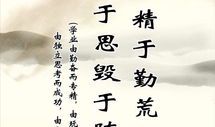 精于勤荒
于思毁于
(学业由勤奋而专精,由玩
由独立思考而成功,由